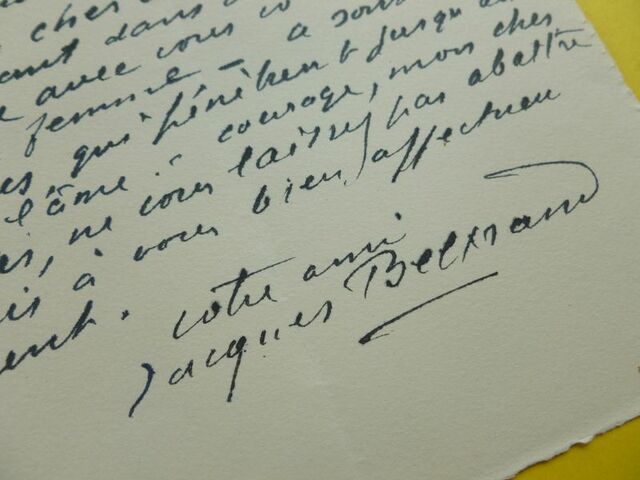 cher
ant dans
avec vous
femme - a
qui pénètrent jusqu'à
l'âme. courage, mon cher
ne vous laissez pas abattre
is à vous bien affectueu
ent.
votre ami
Jacques Beltrand